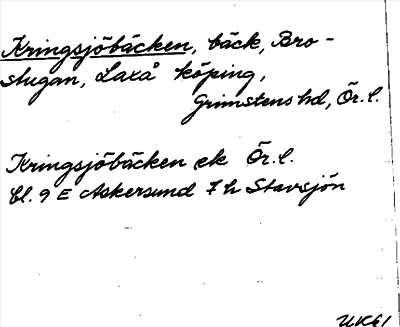 Kringsjöbäcken, bäck, Bro-
stugan, Laxå köping,
Grimstens hd, Ör. l.
Kringsjöbäcken ek Ör. l.
Bl. 9 E Askersund 7 h Stavsjön
UK61